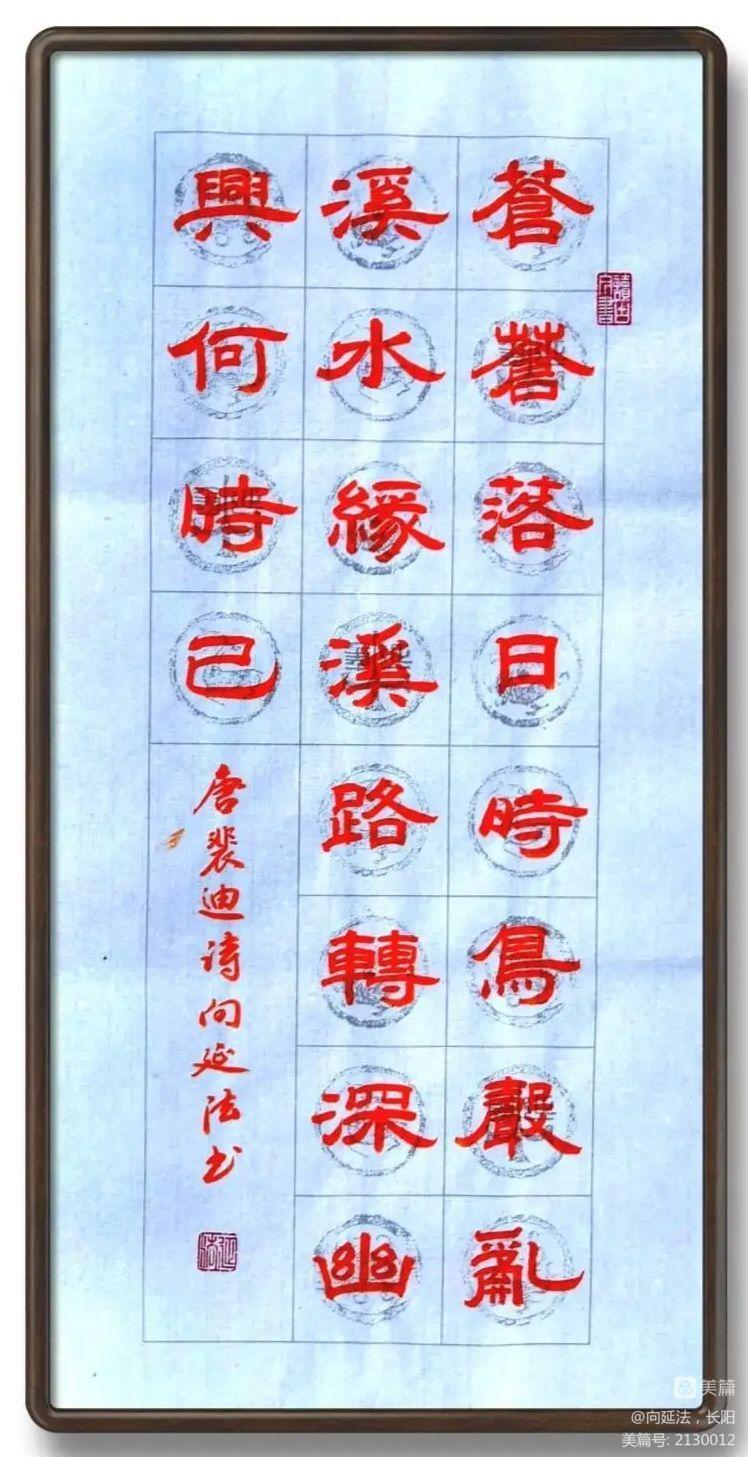 蒼蒼落日時鳥聲亂
溪水緣溪路轉深幽
興何時已
唐裴迪诗向延法书
讀古人書
延法
美篇
@向延法，长阳
美篇号: 2130012